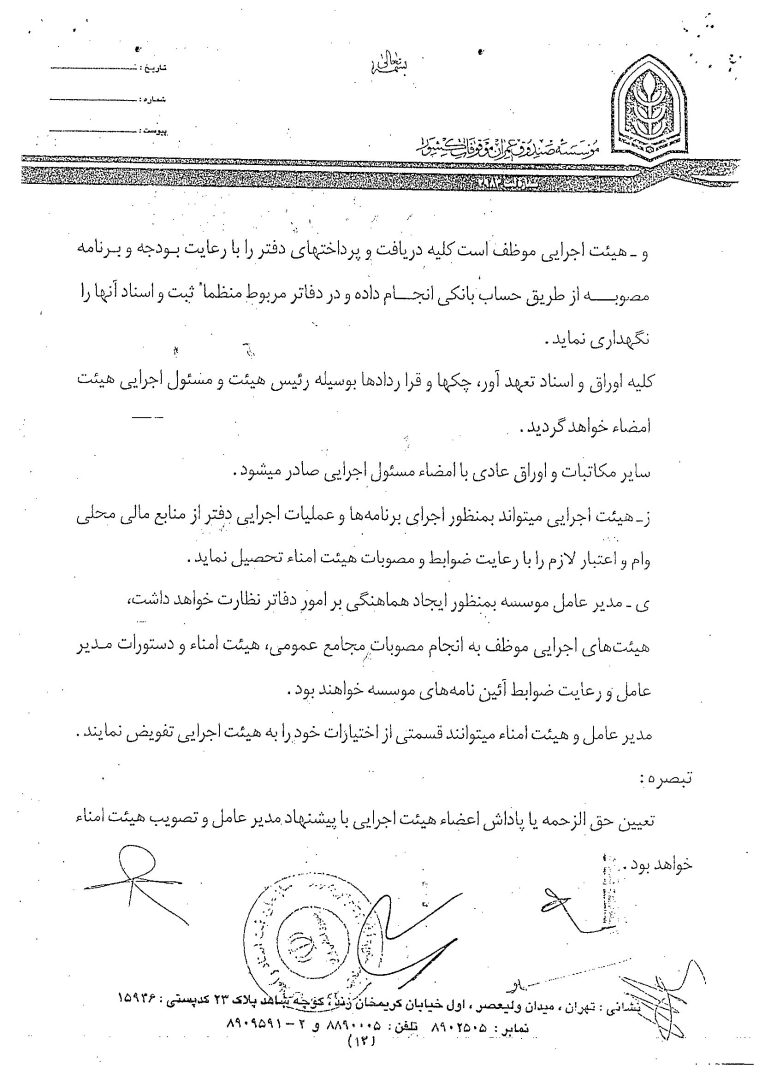 بسمه تعالی
تاریخ :
شماره :
پیوست :
مؤسسه صندوق عمران موقوفات کشور
و ـ هیئت اجرایی موظف است کلیه دریافت و پرداختهای دفتر را با رعایت بودجه و برنامه
مصوبه از طریق حساب بانکی انجام داده و در دفاتر مربوط منظماً ثبت و اسناد آنها را
نگهداری نماید .
کلیه اوراق و اسناد تعهد آور، چکها و قرا ردادها بوسیله رئیس هیئت و مسئول اجرایی هیئت
امضاء خواهد گردید .
سایر مکاتبات و اوراق عادی با امضاء مسئول اجرایی صادر میشود .
ز ـ هیئت اجرایی میتواند بمنظور اجرای برنامه‌ها و عملیات اجرایی دفتر از منابع مالی محلی
وام و اعتبار لازم را با رعایت ضوابط و مصوبات هیئت امناء تحصیل نماید .
ی ـ مدیر عامل موسسه بمنظور ایجاد هماهنگی بر امور دفاتر نظارت خواهد داشت،
هیئت‌های اجرایی موظف به انجام مصوبات مجامع عمومی، هیئت امناء و دستورات مدیر
عامل و رعایت ضوابط آئین نامه‌های موسسه خواهند بود .
مدیر عامل و هیئت امناء میتوانند قسمتی از اختیارات خود را به هیئت اجرایی تفویض نمایند .
تبصره ه :
تعیین حق الزحمه یا پاداش اعضاء هیئت اجرایی با پیشنهاد مدیر عامل و تصویب هیئت امناء
خواهد بود .
نشانی : تهران ، میدان ولیعصر ، اول خیابان کریمخان زند ، کوچه شاهد پلاک ۲۳ کدپستی : ۱۵۹۳۶
نمابر : ۸۹۰۲۵۰۵ تلفن : ۸۸۹۰۰۰۵ و ۲ – ۸۹۰۹۵۹۱
(۱۲)